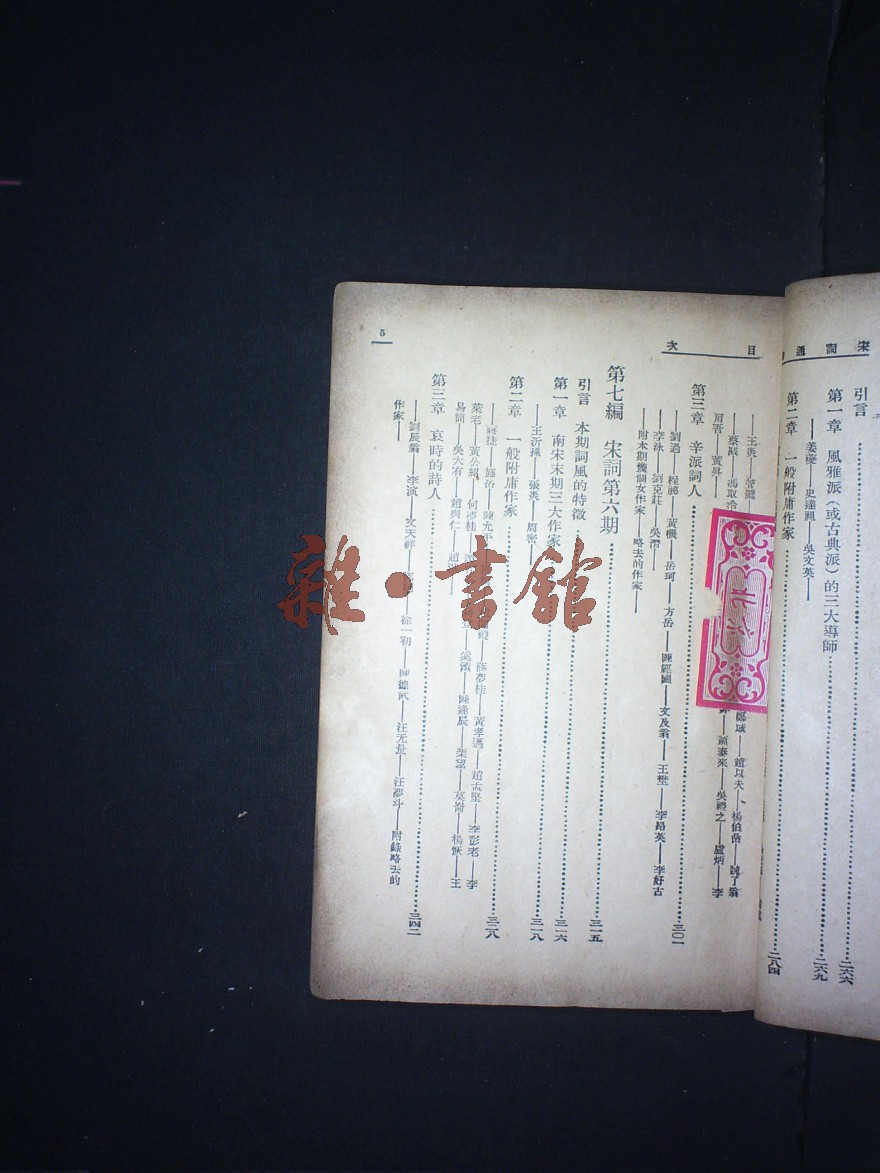 宋詞通
引言……二六六
第一章 風雅派(或古典派)的三大導師……二六九
姜夔——史達祖——吳文英——
第二章 一般附庸作家……二八四
目次
——王炎——
——蔡戡——馮取洽
鄭域——趙以夫——楊伯嵒——
蕭泰來——吳禮之——盧炳——李
第三章 辛派詞人……三〇一
劉過——程珌——黃機——岳珂——方岳——陳經國——文及翁——王埜——李昂英——李好古
——李泳——劉克莊——吳潛——
附本期幾個女作家——略去的作家——
第七編 宋詞第六期……三一五
引言 本期詞風的特徵……三一六
第一章 南宋末期三大作家……三一八
——王沂孫——張炎——周密——
第二章 一般附庸作家……三二八
——蔣捷——陳允平
薛夢桂——黃孝邁——趙孟堅——李彭老——李
萊老——黃公紹——何夢桂
陳逢辰——柴望——莫崙——楊恢——王
易簡——吳大有——趙與仁——
第三章 哀時的詩人……三四二
——劉辰翁——李演——文天祥——
徐一初——汪元量——汪夢斗——附錄略去的
作家——
5
雜·書館